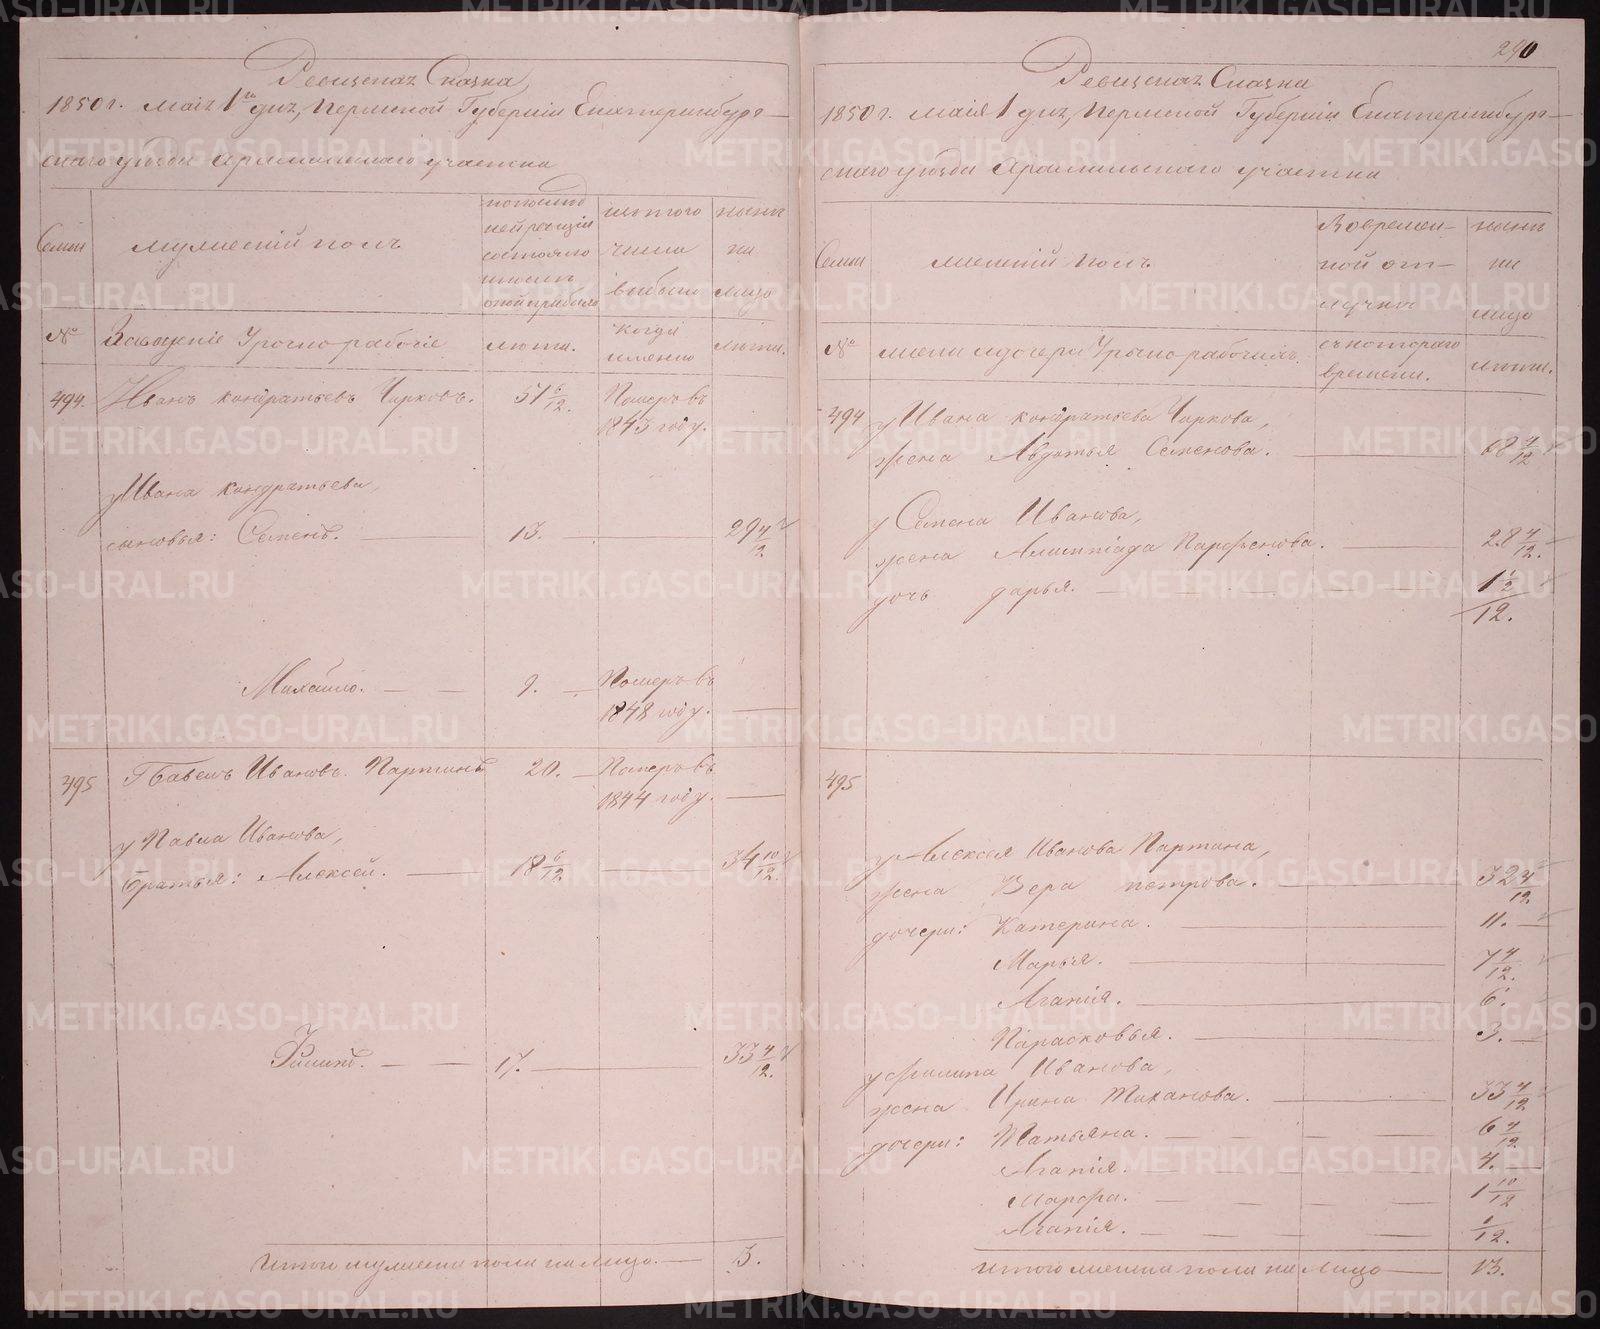 290
Ревизская Сказка
1850 г. маія 1го дня, Пермской Губерніи Екатеринбург-
скаго уѣзда Арамильскаго участка
Семьи
мужескій полъ
по послед
ней ревизіи
состояло
и после
оной прибыло
изъ того
числа
выбыло
нынѣ
на
лицо
№
Заводскіе Урочно рабочіе
лѣта.
когда
именно
лѣта.
494.
Иванъ кондратьевъ Чирковъ.
51 6/12.
Померъ въ
1843 году.
у Ивана кондратьева,
сыновья: Семенъ.
13.
29 4/12.
Михайло.
9.
Померъ въ
1848 году.
495
Павелъ Ивановъ Партинъ
20.
Померъ въ
1844 году.
у Павла Иванова,
братья: Алексей.
18 6/12.
34 10/12.
Филипъ.
17.
33 4/12.
Итого мужеска пола на лицо.
3.
Ревизская Сказка
1850 г. маія 1 дня, Пермской Губерніи Екатеринбург-
скаго уѣзда Арамильскаго участка
Семьи
женскій полъ
Во времен-
ной от-
лучке
нынѣ
на
лицо
№
жены и дочери Урочно рабочихъ
съ котораго
времени.
лѣта.
494
у Ивана кондратьева Чиркова,
жена Авдотья Семенова.
68 4/12
у Семена Иванова,
жена Алимпіада Парфенова.
28 4/12.
дочь дарья.
1 1/2/12.
495
у Алексея Иванова Партина,
жена Вера петрова.
32 4/12.
дочери: Катерина.
11.
Марья.
7 4/12.
Агапія.
6.
Парасковья.
3.
у Филипа Иванова,
жена Ирина Тиханова.
33 4/12
дочери: Татьяна.
6 4/12.
Агапія.
4.
Марфа.
1 10/12
Агапія.
1/12.
Итого женска пола на лицо
13.
METRIKI.GASO-URAL.RU